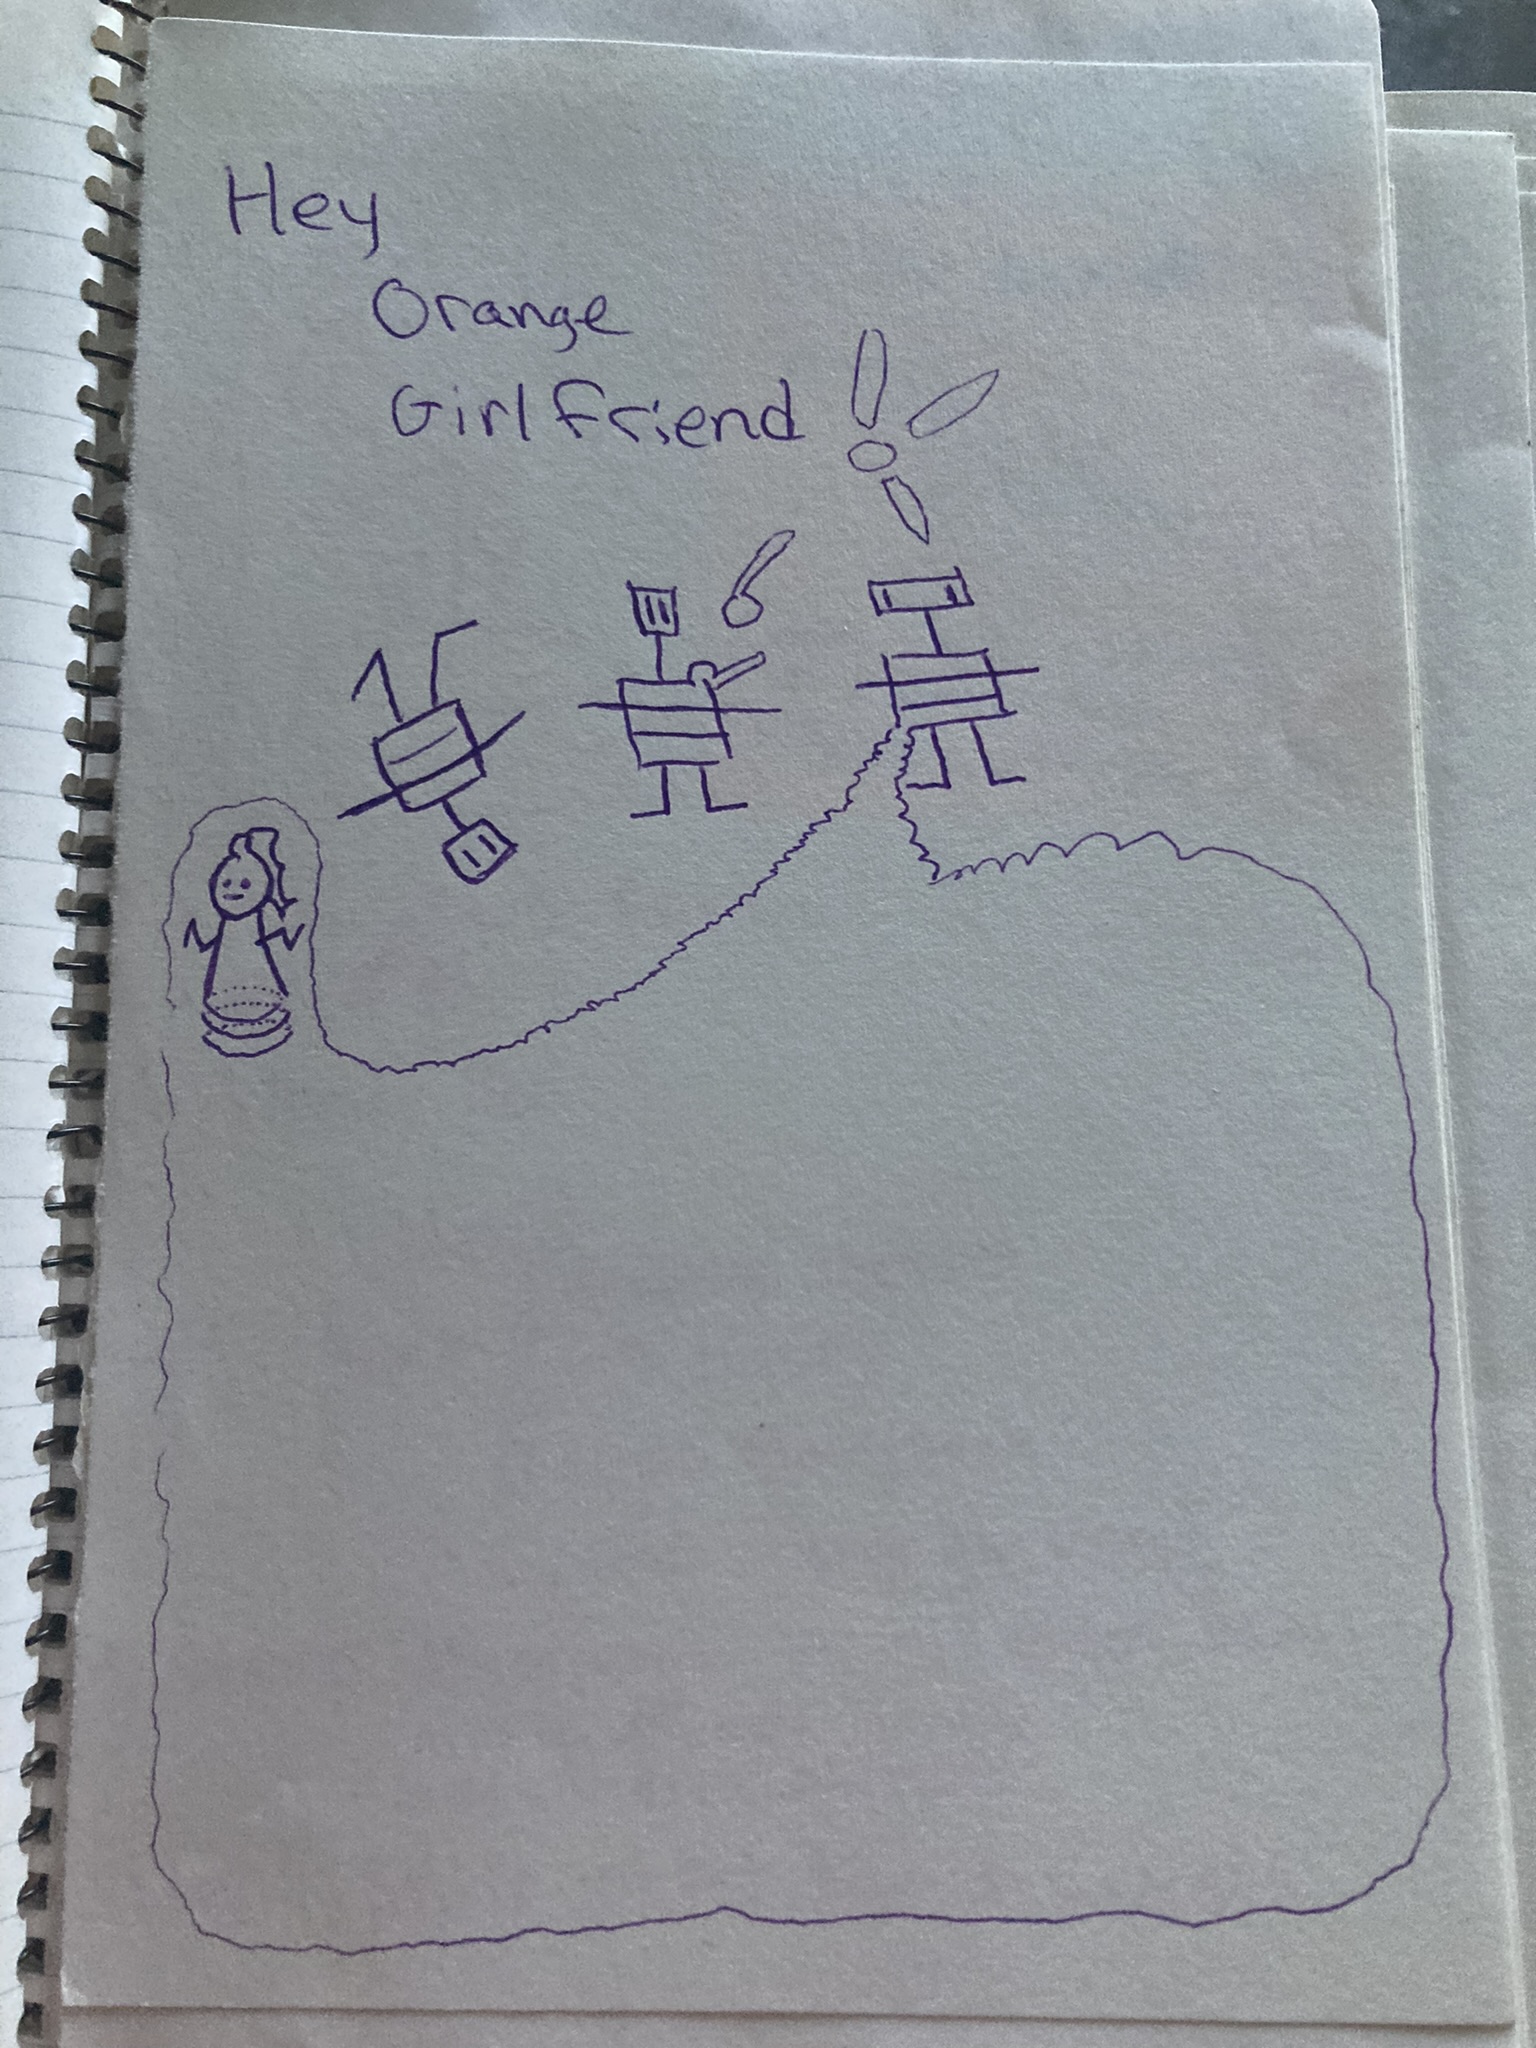 Hey
Orange
Girlfriend